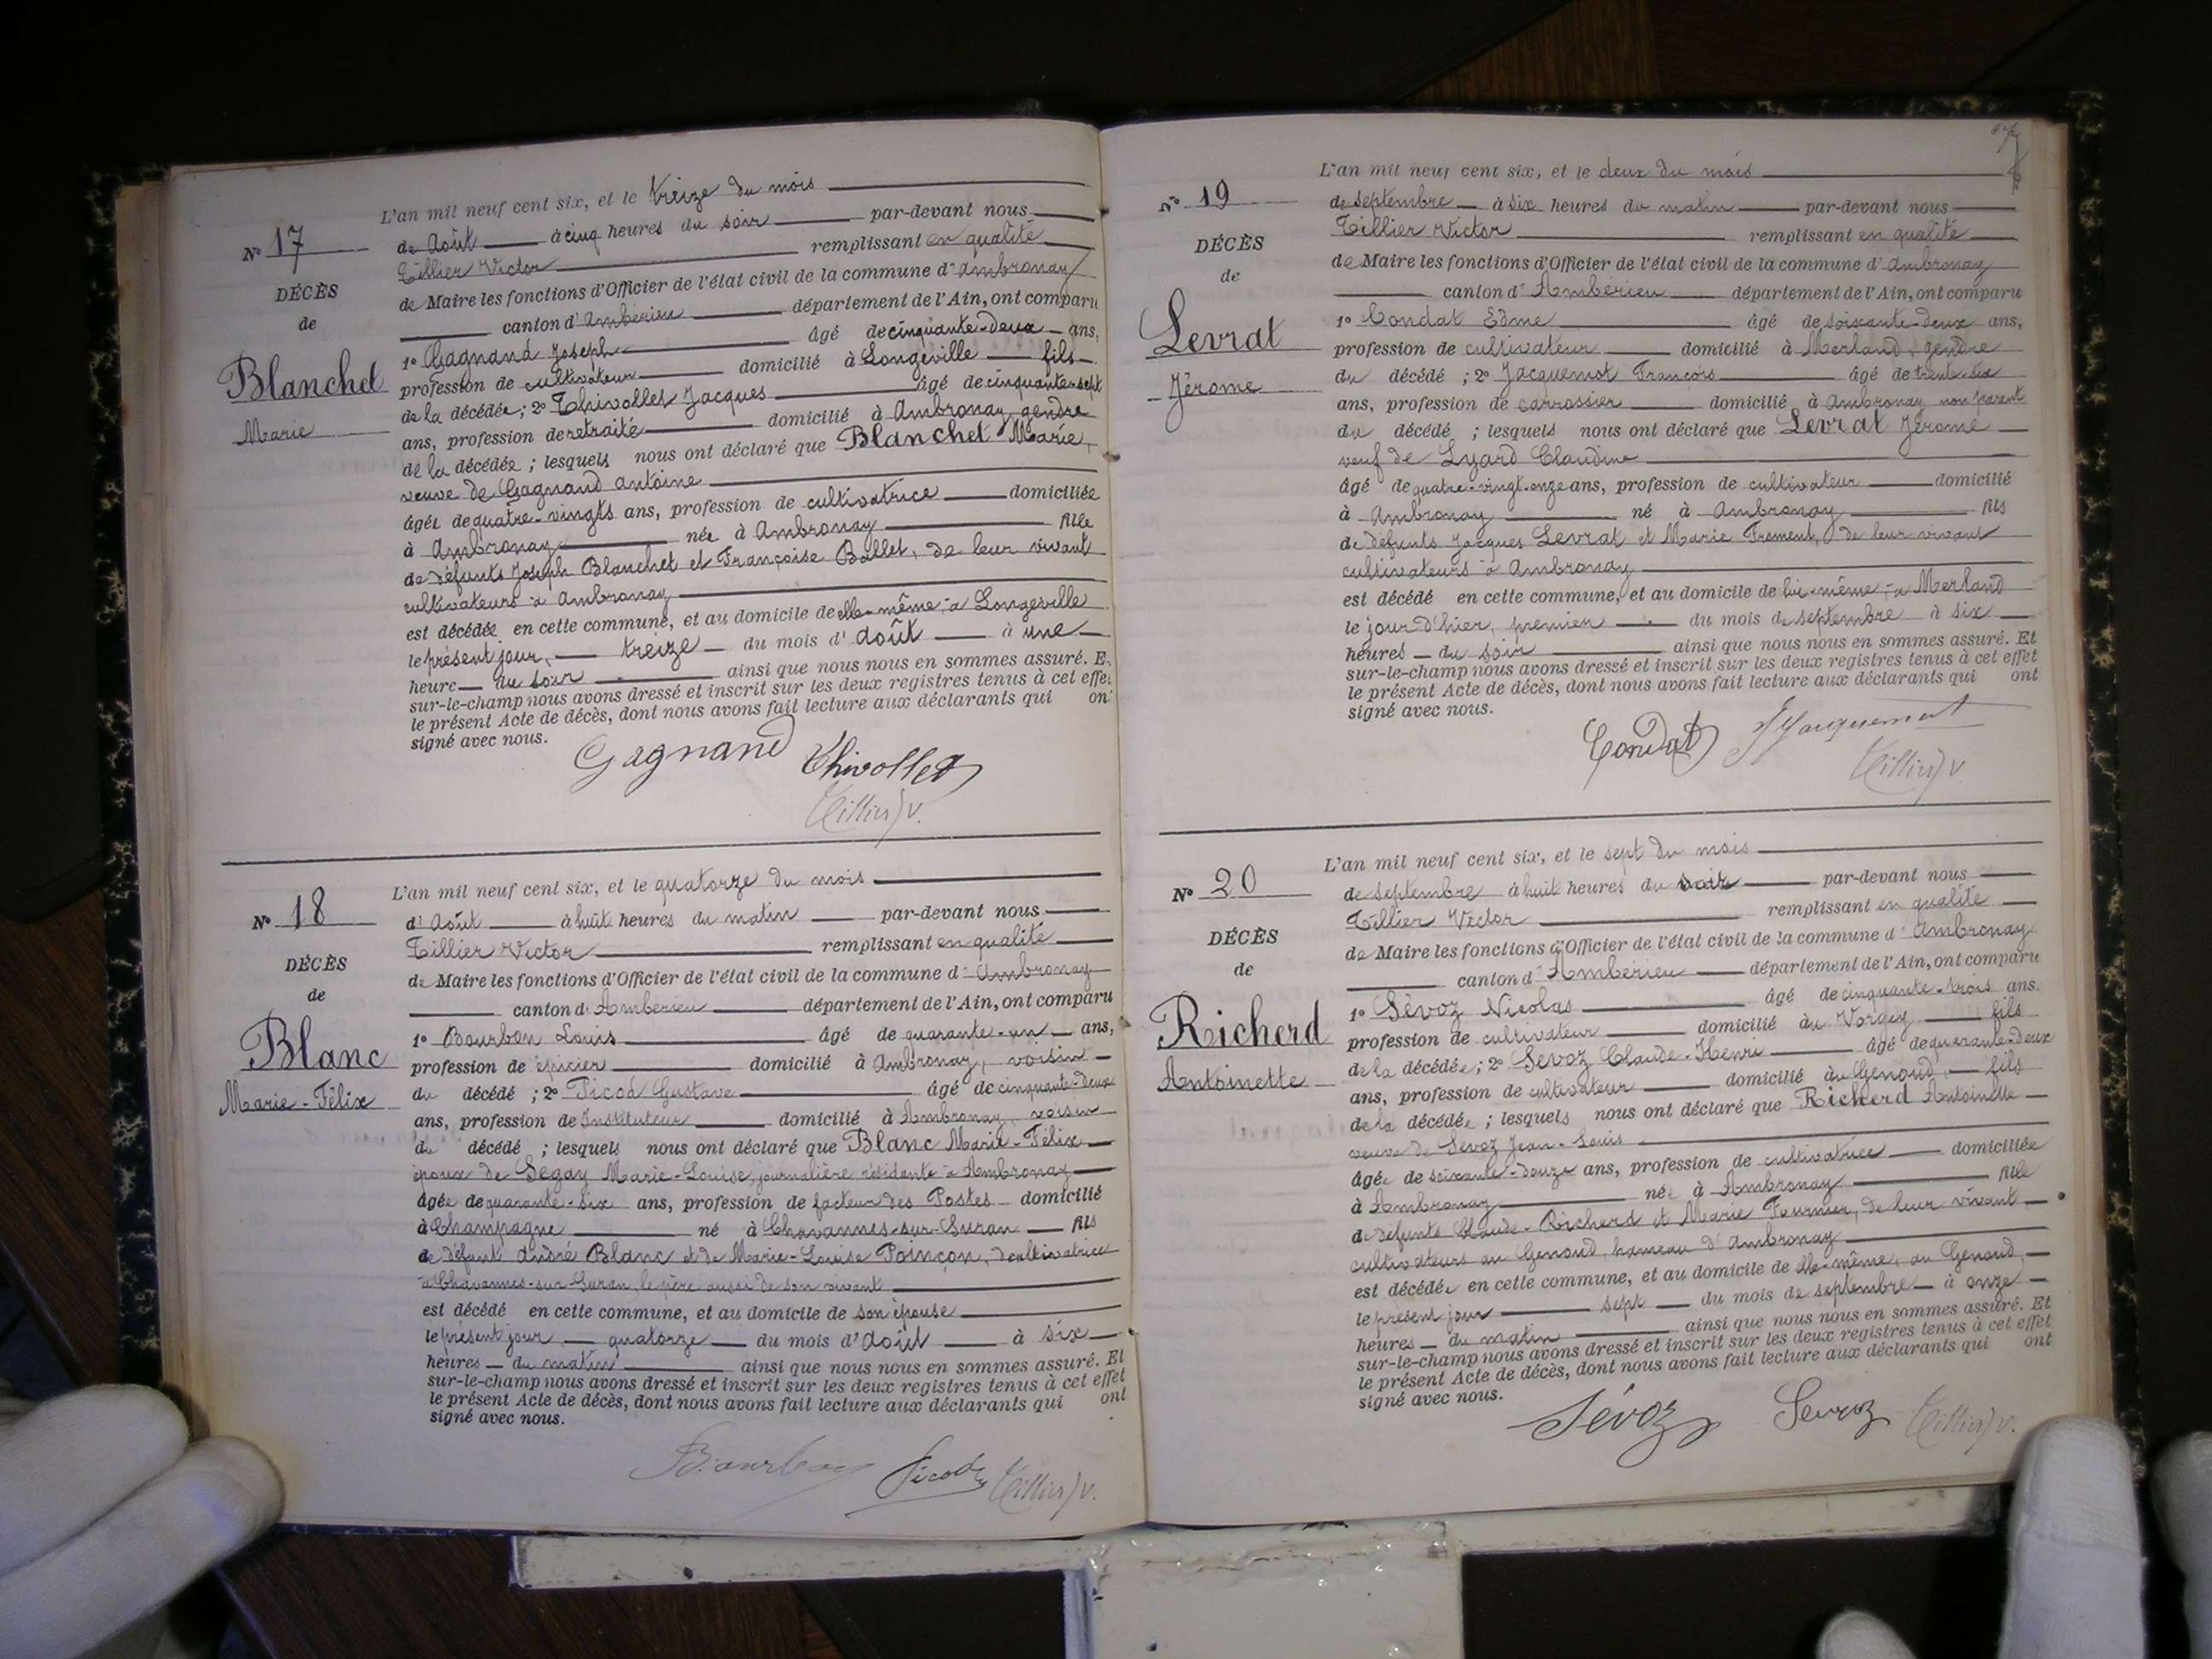 L'an mil neuf cent six, et le treize du mois
Nº 17
de Août à cinq heures du soir par-devant nous
Tillier Victor remplissant en qualité
DÉCÈS
de Maire les fonctions d'Officier de l'état civil de la commune d'Ambronay
de
canton d'Ambérieu département de l'Ain, ont comparu
1º Gagnand Joseph âgé de cinquante-deux ans,
Blanchet
profession de cultivateur domicilié à Longeville fils
de la décédée ; 2º Thivollet Jacques âgé de cinquante-sept
Marie
ans, profession de retraité domicilié à Ambronay, gendre
de la décédée ; lesquels nous ont déclaré que Blanchet Marie,
veuve de Gagnand Antoine
âgée de quatre-vingts ans, profession de cultivatrice domiciliée
à Ambronay née à Ambronay fille
de défunts Joseph Blanchet et Françoise Ballet, de leur vivant
cultivateurs à Ambronay
est décédée en cette commune, et au domicile de elle-même, à Longeville
le présent jour, treize du mois d'août à une
heure du soir ainsi que nous nous en sommes assuré. E
sur-le-champ nous avons dressé et inscrit sur les deux registres tenus à cet effe
le présent Acte de décès, dont nous avons fait lecture aux déclarants qui on
signé avec nous.
Gagnand Thivollet
Tillier V.
L'an mil neuf cent six, et le quatorze du mois
Nº 18
d'Août à huit heures du matin par-devant nous
Tillier Victor remplissant en qualité
DÉCÈS
de Maire les fonctions d'Officier de l'état civil de la commune d'Ambronay
de
canton d'Ambérieu département de l'Ain, ont comparu
1º Bourbon Louis âgé de quarante-un ans,
Blanc
profession de épicier domicilié à Ambronay, voisin
Marie-Félix
du décédé ; 2º Picod Gustave âgé de cinquante-deux
ans, profession de Instituteur domicilié à Ambronay, voisin
du décédé ; lesquels nous ont déclaré que Blanc Marie-Félix
époux de Segay Marie-Louise, journalière, résidente à Ambronay
âgée de quarante-six ans, profession de facteur des Postes domicilié
à Champagne né à Chavannes-sur-Suran fils
de défunt André Blanc et de Marie-Louise Poinçon, cultivatrice
à Chavannes-sur-Suran, le père aussi de son vivant
est décédé en cette commune, et au domicile de son épouse
le présent jour, quatorze du mois d'août à six
heures du matin ainsi que nous nous en sommes assuré. Et
sur-le-champ nous avons dressé et inscrit sur les deux registres tenus à cet effet
le présent Acte de décès, dont nous avons fait lecture aux déclarants qui ont
signé avec nous.
Bourbon Picod Tillier V.
L'an mil neuf cent six, et le deux du mois
Nº 19
de septembre à six heures du matin par-devant nous
Tillier Victor remplissant en qualité
DÉCÈS
de Maire les fonctions d'Officier de l'état civil de la commune d'Ambronay
de
canton d'Ambérieu département de l'Ain, ont comparu
1º Condat Edme âgé de soixante-deux ans,
Levrat
profession de cultivateur domicilié à Merland, gendre
du décédé ; 2º Jacquemot François âgé de trente-six
Jérome
ans, profession de carrossier domicilié à Ambronay non parent
du décédé ; lesquels nous ont déclaré que Levrat Jérome
veuf de Lyard Claudine
âgé de quatre-vingt-onze ans, profession de cultivateur domicilié
à Ambronay né à Ambronay fils
de défunts Jacques Levrat et Marie Froment, de leur vivant
cultivateurs à Ambronay
est décédé en cette commune, et au domicile de lui-même, à Merland
le jour d'hier, premier du mois de septembre à six
heures du soir ainsi que nous nous en sommes assuré. Et
sur-le-champ nous avons dressé et inscrit sur les deux registres tenus à cet effet
le présent Acte de décès, dont nous avons fait lecture aux déclarants qui ont
signé avec nous.
Condat Jacquemot
Tillier V.
L'an mil neuf cent six, et le sept du mois
Nº 20
de septembre à huit heures du soir par-devant nous
Tillier Victor remplissant en qualité
DÉCÈS
de Maire les fonctions d'Officier de l'état civil de la commune d'Ambronay
de
canton d'Ambérieu département de l'Ain, ont comparu
1º Sévoz Nicolas âgé de cinquante-trois ans.
Richerd
profession de cultivateur domicilié au Vorgey fils
Antoinette
de la décédée ; 2º Sévoz Claude-Henri âgé de quarante-deux
ans, profession de cultivateur domicilié au Genoud, fils
de la décédée ; lesquels nous ont déclaré que Richerd Antoinette
veuve de Sévoz Jean-Louis
âgée de soixante-douze ans, profession de cultivatrice domiciliée
à Ambronay née à Ambronay fille
de défunts Claude Richerd et Marie Fournier, de leur vivant
cultivateurs au Genoud, hameau d'Ambronay
est décédée en cette commune, et au domicile de elle-même, au Genoud,
le présent jour sept du mois de septembre à onze
heures du matin ainsi que nous nous en sommes assuré. Et
sur-le-champ nous avons dressé et inscrit sur les deux registres tenus à cet effet
le présent Acte de décès, dont nous avons fait lecture aux déclarants qui ont
signé avec nous.
Sévoz Sevoz Tillier V.